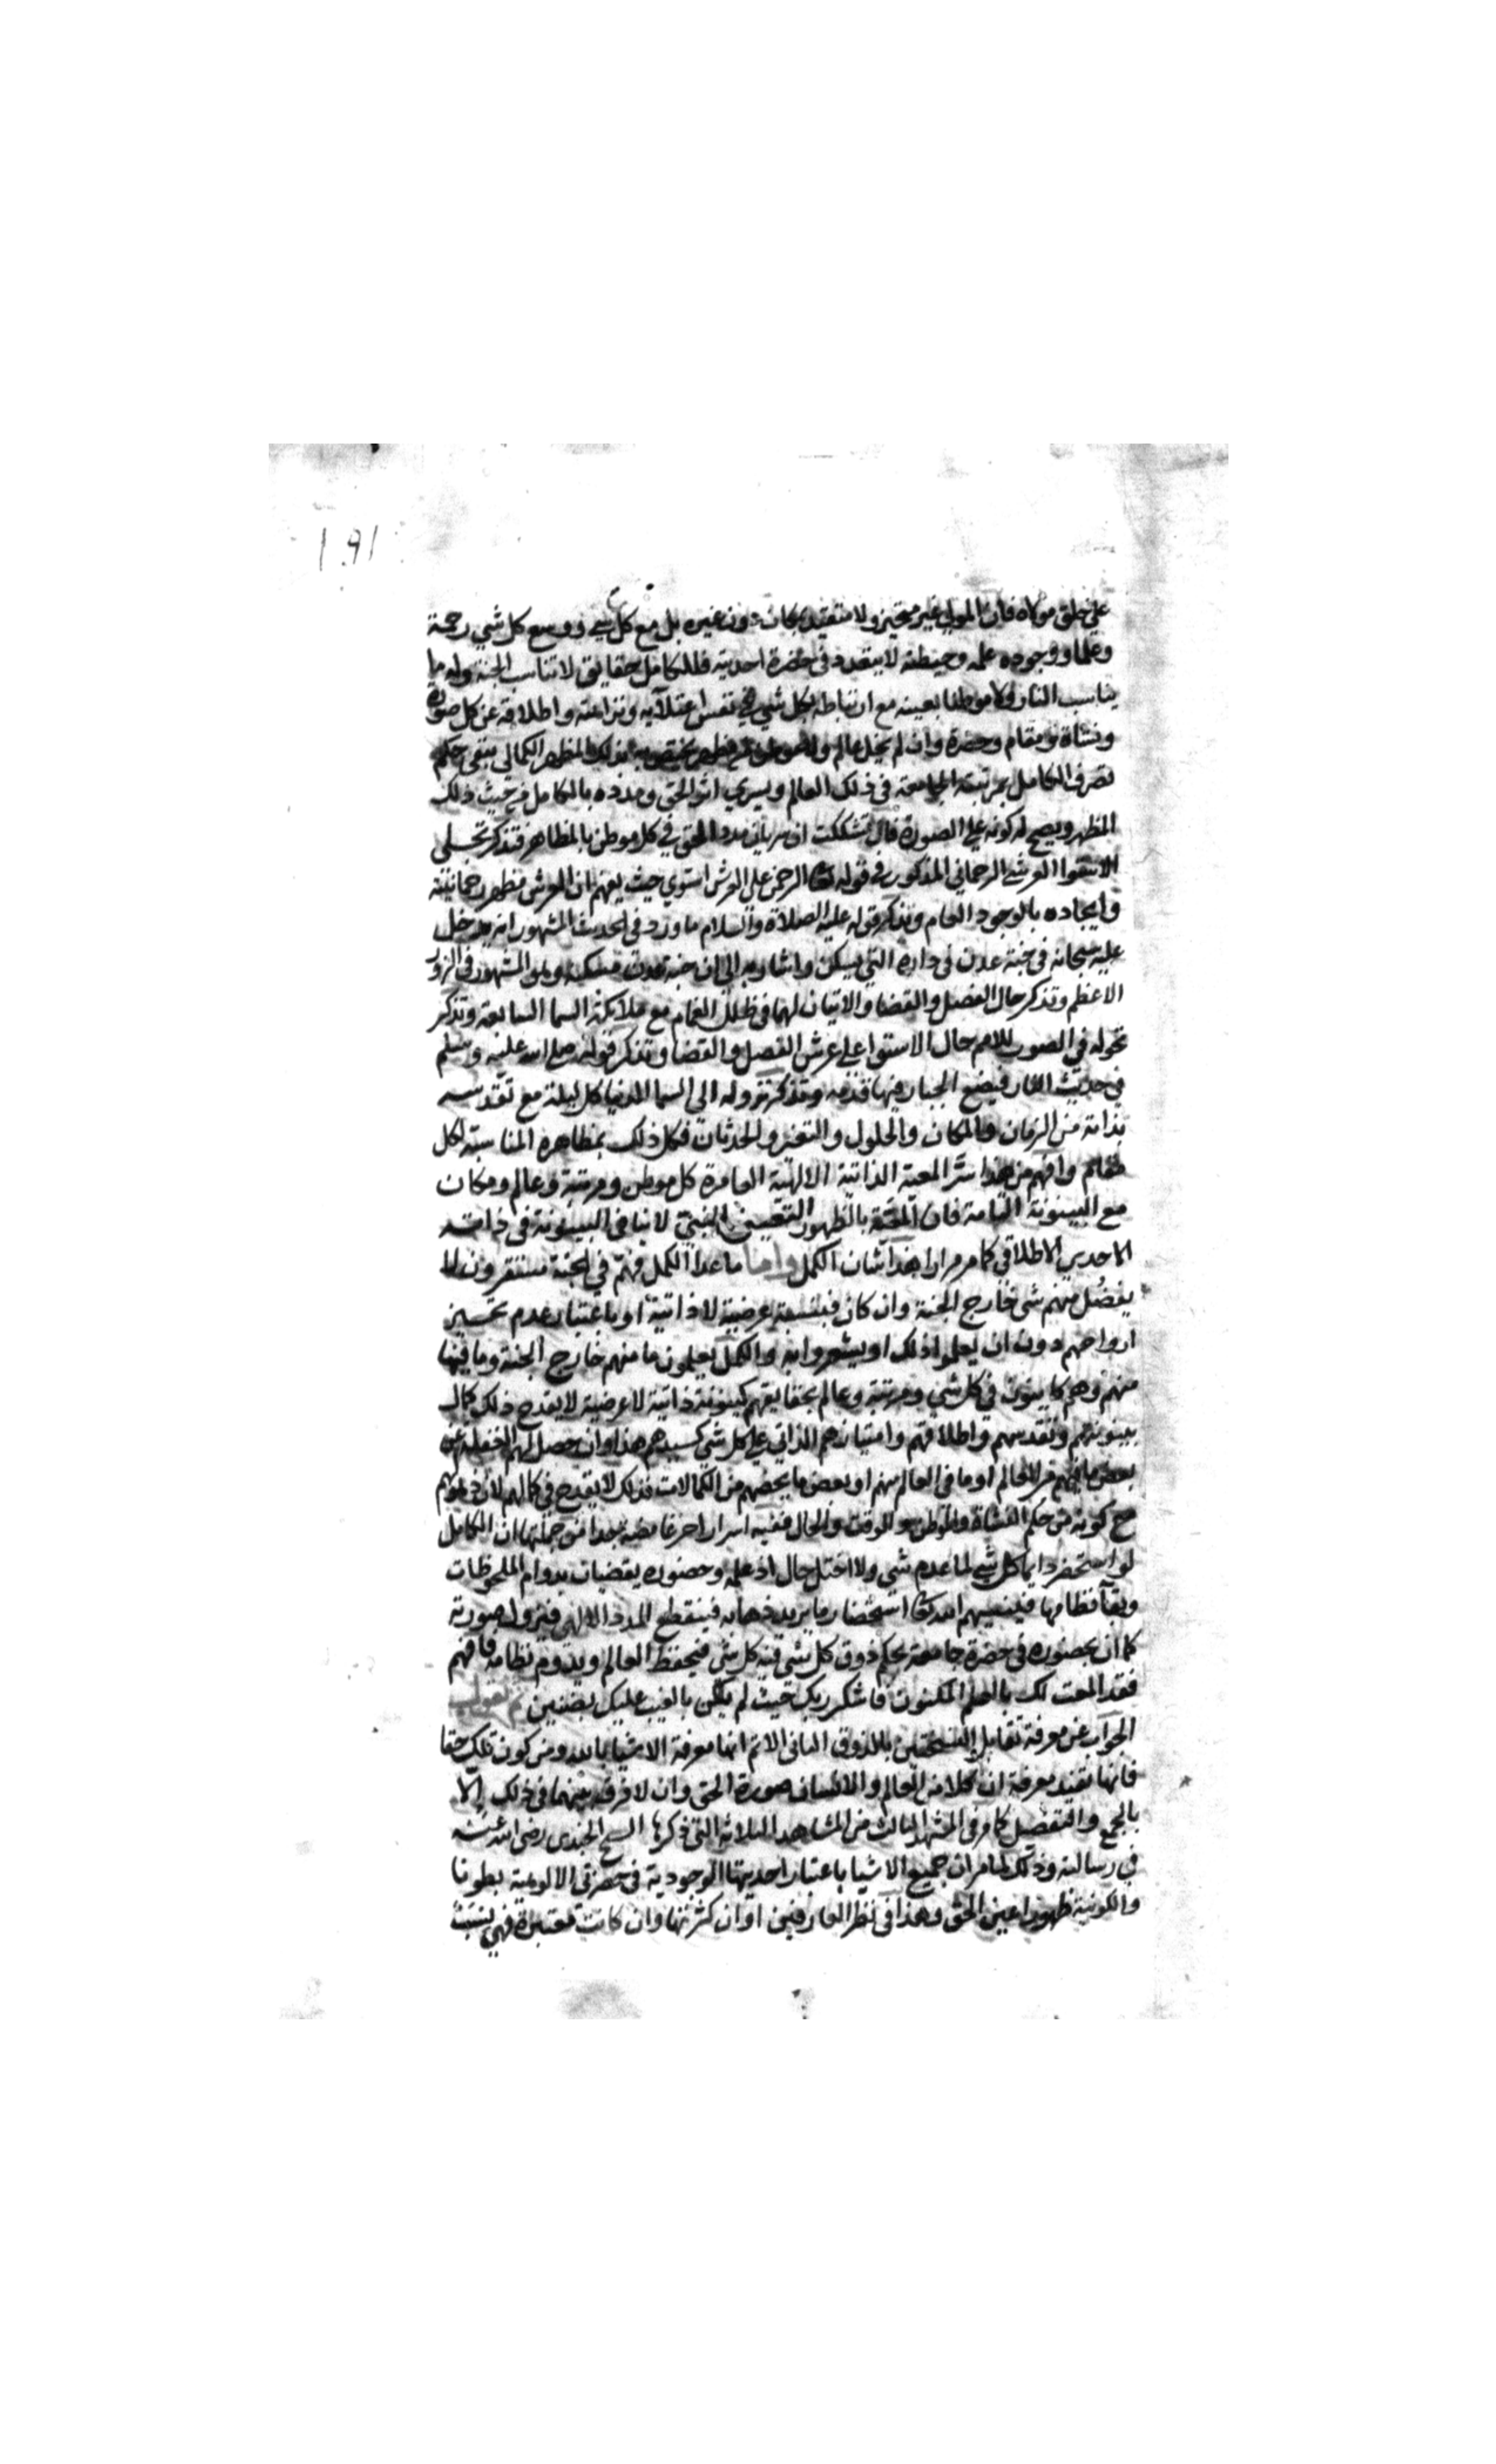 ١٩١
على خلق مولاه فان المولى غير متحيز ولا متقيد بمكان دون غيره بل مع كل شي ووسع كل شي رحمة
وعلما ووجوده علمه وحيطته لا يتعدد في حضرة احديته فللكامل حقايق لا تناسب الجنة وله ما
يناسب النار ولا موطنا بعينه مع ارتباطه بكل شي في نفس اعتلآيه ونزاهته واطلاقه عن كل صورة
ونشاة ومقام وحضرة وان لم يخل عالم ولا موطن من مظهر يختص به فبذلك المظهر الكمالي يبقى حكم
تصرف الكامل بمرتبته الجامعة في ذلك العالم ويسري اثر الحق ومدده بالكامل من حيث ذلك
المظهر ويصح له كونه على الصورة فان تشككت ان سريان مدد الحق في كل موطن بالمظاهر فتذكر تجلى
الاستوا العرشي الرحماني المذكور في قوله تعا الرحمن على العرش استوي حيث يفهم ان العرش مظهر رحمانيته
وايجاده بالوجود العام وتذكر قوله عليه الصلاة والسلام ما ورد في الحديث المشهور انه يدخل
عليه سبحانه في جنة عدن في داره التي يسكن واشار به الى ان جنة عدن مسكنه وهو المشهور في الزور
الاعظم وتذكر حال الفصل والقضا والاتيان لهما في ظلل الغمام مع ملايكة السما السابعة وتذكر
تحوله في الصور للامم حال الاستوا على عرش الفصل والقضا وتذكر قوله صلى الله عليه وسلم
في حديث النار فيضع الجبار فيها قدمه وتذكر نزوله الى السما الدنيا كل ليلة مع تقدسه
بذاته من الزمان والمكان والحلول والتغير والحدثان فكل ذلك بمظاهره المناسبة لكل
مقام وافهم من هذا سر المعية الذاتية الالهية العامرة كل موطن ومرتبة وعالم ومكان
مع البينونة التامة فان المعية بالظهور التعيني النسبي لا ينافي البينونة في ذاته
الاحدي الاطلاقي كما مر مرارا هذا شان الكمل واما ما عدا الكمل فهم في الجنة مستقرون لا
يفضل منهم شي خارج الجنة وان كان فبنسبة عرضية لا ذاتية او باعتبار عدم تحيز
ارواحهم دون ان يعلموا ذلك او يشعروا به والكمل يعلمون ما منهم خارج الجنة وما فيها
منهم وهم كاينون في كل شي ومرتبة وعالم بحقايقهم كينونة ذاتية لا عرضية لا يقدح ذلك كمال
بينونتهم وتقدسهم واطلاقهم وامتيازهم الذاتي على كل شي كسيدهم هذا وان حصل لهم الغفلة عن
بعض ما فيهم من العالم او ما في العالم منهم او بعض ما يخصهم من الكمالات فذلك لا يقدح في كمالهم لان ذهولهم
مع كونه من حكم النشاة والموطن والوقت والحال ففيه اسرار اخر غامضة جدا من جملتها ان الكامل
لو استحضر دايما كل شي لما عدم شي ولا اختل حال اذ علمه وحضوره يقضيان بدوام الملحوظات
وبقآ نظامها فينسيهم الله تعا استحضار ما يريد ذهابه فينقطع المدد الالهي فتزول صورته
كما ان بحضوره في حضرة جامعة بحكم ذوق كل شي فيه كل شي فيحفظ العالم ويدوم نظامه فافهم
فقد المعت لك بالعلم المكنون فاشكر ربك حيث لم يكن بالغيب عليك بضنين ثم نقول
الجواب عن معرفة تقابل النسختين بالذوق الثاني الاتم انها معرفة الاشيا بالله ومن كون تلك حقا
فانها تفيد معرفة ان كلا من العالم والانسان صورة الحق وان لا فرق بينهما في ذلك الا
بالجمع والتفصيل كما مر في المشهد الثالث من المشاهد الثلاثة التي ذكرها الشيخ الجندي رضى الله عنه
في رسالته وذلك لما مر ان جميع الاشيا باعتبار احديتها الوجودية في حضرتي الالوهية بطونا
والكونية ظهورا عين الحق وهذا في نظر العارفين اذ ان كثرتها وان كانت معتبرة فهي نسب